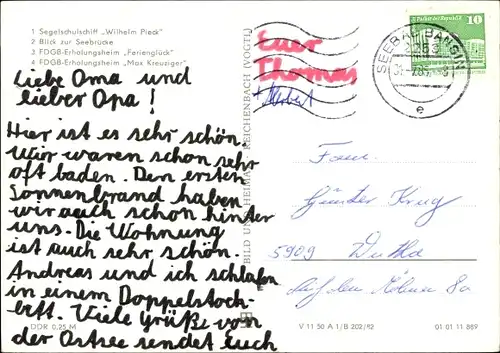 1 Segelschulschiff „Wilhelm Pieck"
2 Blick zur Seebrücke
3 FDGB-Erholungsheim „Ferienglück"
4 FDGB-Erholungsheim „Max Kreuziger"
Liebe Oma und
lieber Opa!
Hier ist es sehr schön.
Wir waren schon sehr
oft baden. Den ersten
Sonnenbrand haben
wir auch schon hinter
uns. Die Wohnung
ist auch sehr schön.
Andreas und ich schlafen
in einem Doppelstock-
bett. Viele Grüße von
der Ostsee sendet Euch
Euer
Thomas
+ Herbert
DDR 0,25 M
BILD UND HEIMAT REICHENBACH (VOGTL)
SEEBAD BANSIN
2253
e
10
Fam.
Günter Krug
5909
Auf den Höhnen 8a
V 11 50 A 1/B 202/82
01 01 11 869